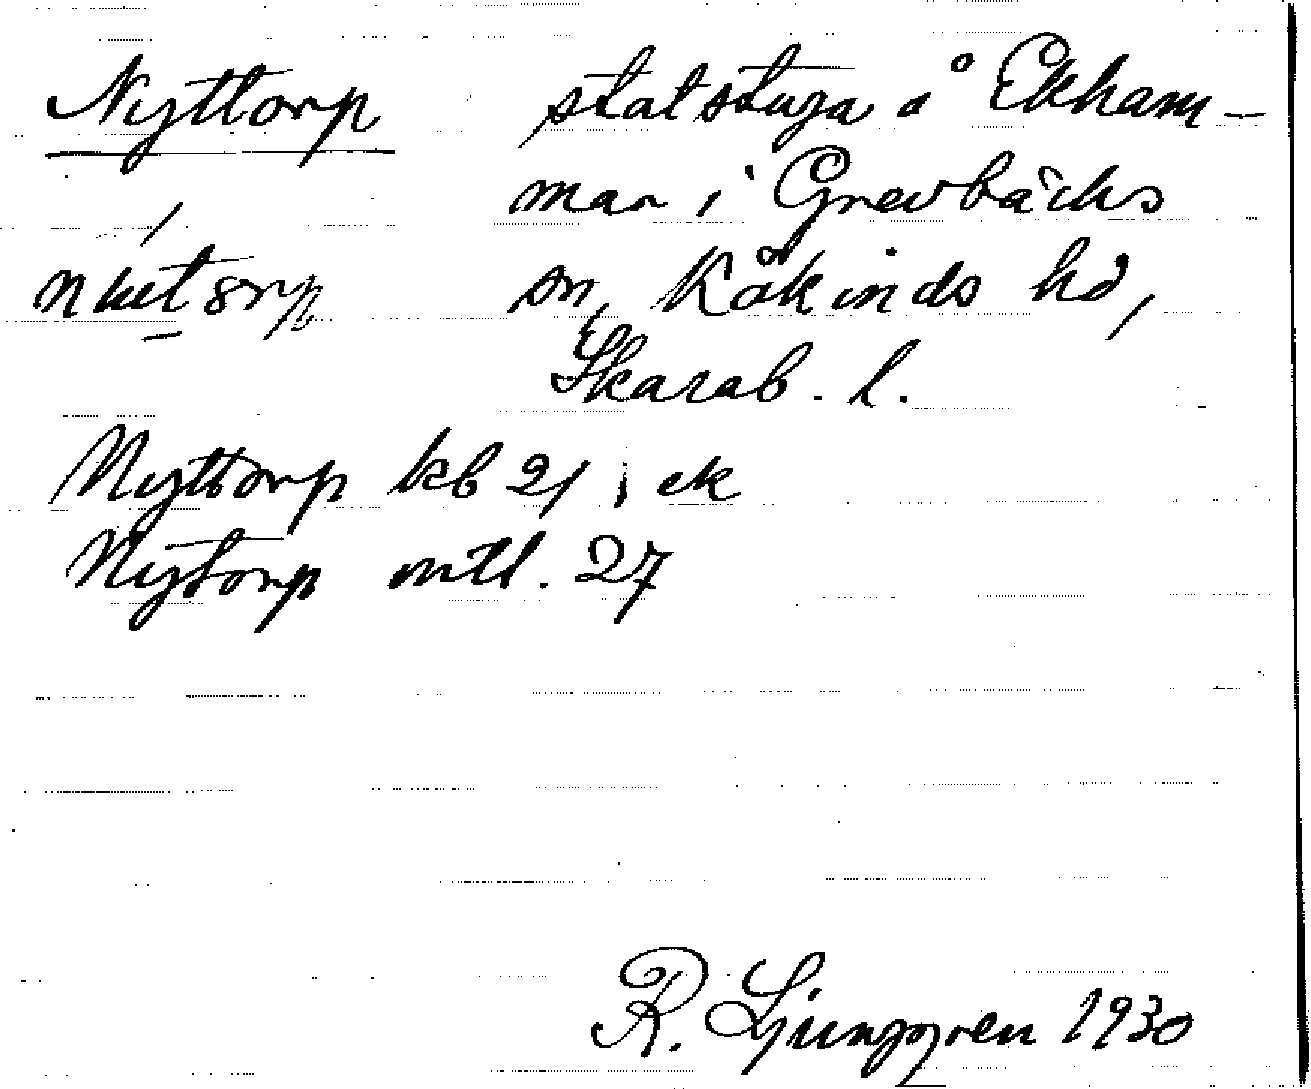 Nyttorp statstuga å Ekham-
man i Grevbäcks
sn, Kåkinds hd,
Skarab. l.
Nyttorp kb 21, ek
Nytorp mtl. 27
R. Ljunggren 1930